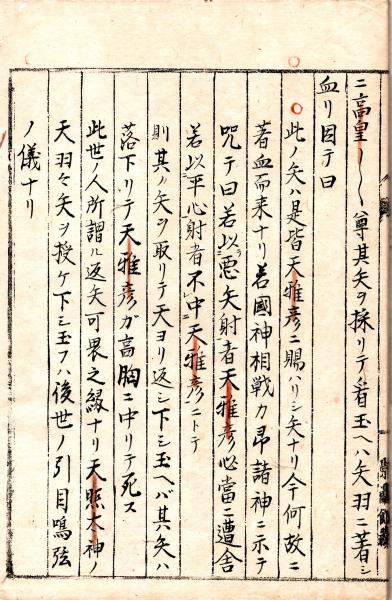 ニ高皇〱尊其矢ヲ採リテ看玉ヘハ矢羽ニ著シ
血リ因テ曰
此ノ矢ハ是皆天雅彦ニ賜ハリシ矢ナリ今何故ニ
著血而来ナリ若國神相戦カ昂諸神ニ示テ
咒テ曰若以悪矢射者天雅彦必當ニ遭害
若以平心射者不中天雅彦ニトテ
則其ノ矢ヲ取リテ天ヨリ返シ下シ玉ヘバ其矢ハ
落下リテ天雅彦ガ高胸ニ中リテ死ス
此世ノ人所謂ル返矢可畏之縁ナリ天照太神ノ
天羽々矢ヲ授ケ下シ玉フハ後世ノ引目鳴弦
ノ儀ナリ